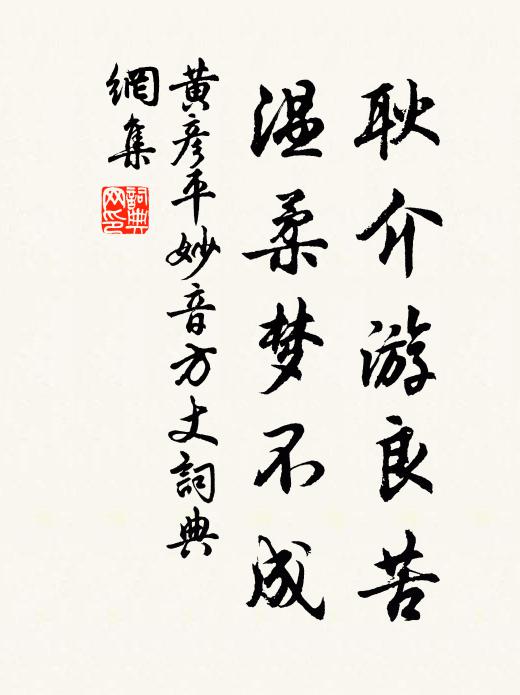 耿介游良苦
温柔梦不成
黃彦平妙音方丈詞典
網集
詞典网印